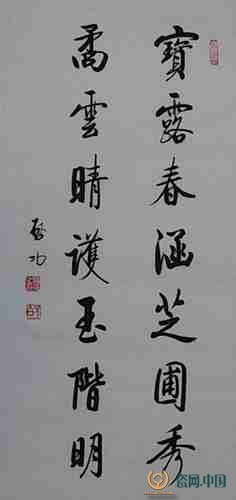 寶露春涵芝圃秀
矞雲晴護玉階明
啟功
谷网.中国